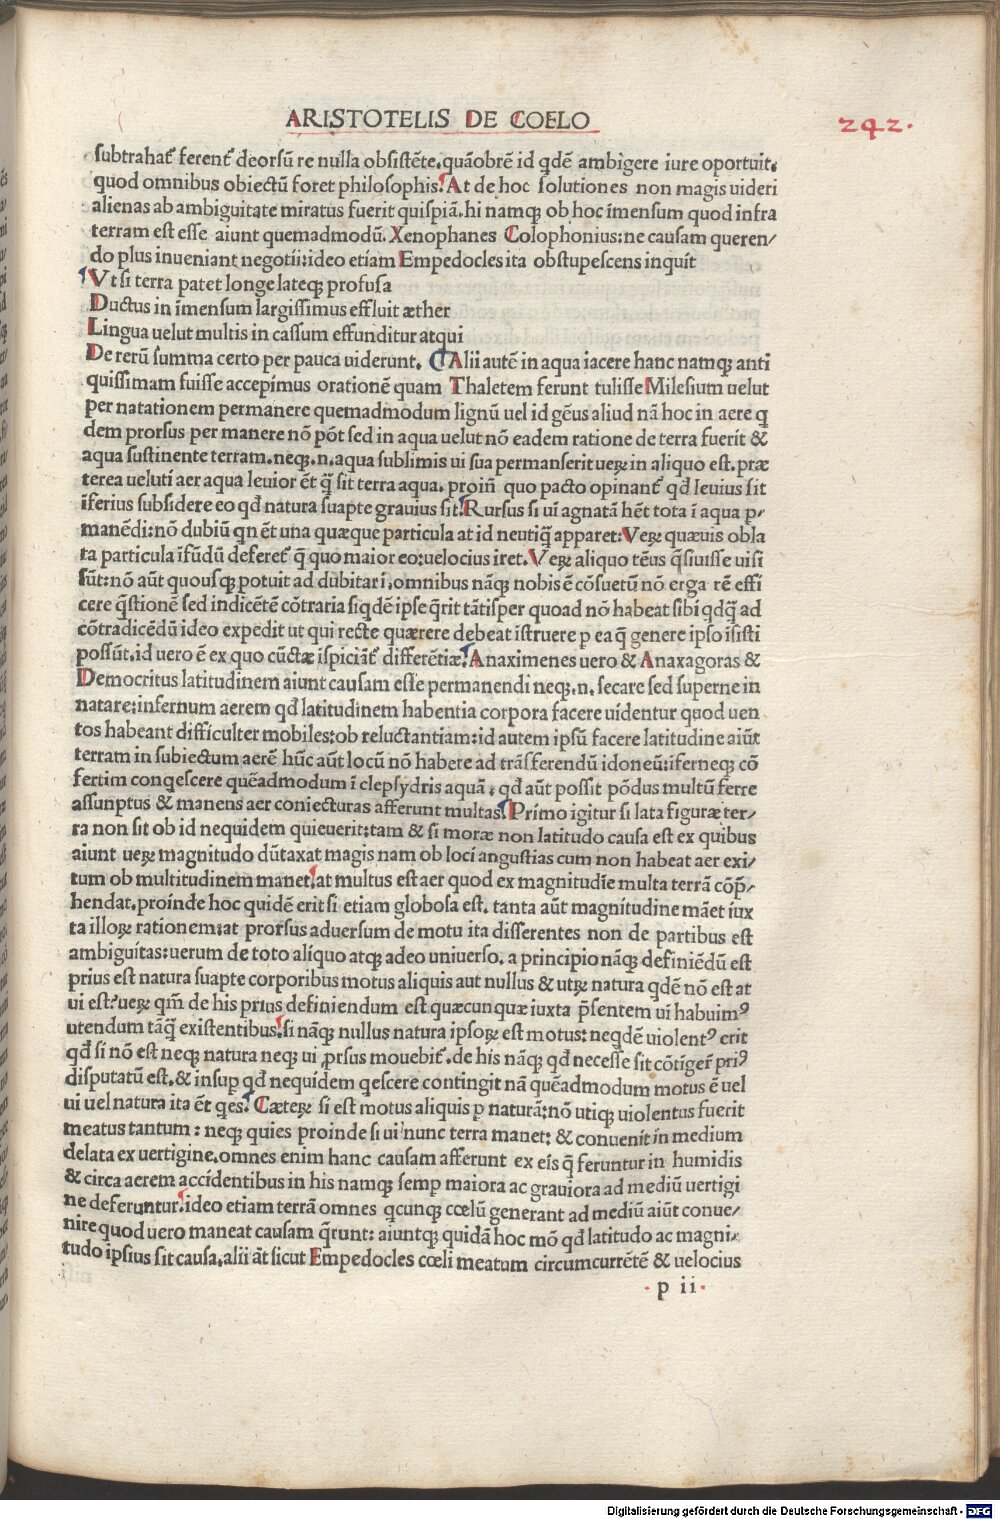 ARISTOTELIS DE COELO
242.
subtrahat᷒ ferent᷒ deorsū re nulla obsistēte.quāobrē id qdē ambigere iure oportuit.
quod omnibus obiectū foret philosophis.At de hoc solutiones non magis uideri
alienas ab ambiguitate miratus fuerit quispiā.hi namqꝫ ob hoc īmensum quod infra
terram est esse aiunt quemadmodū. Xenophanes Colophonius:ne causam queren/
do plus inueniant negotii:ideo etiam Empedocles ita obstupescens inquit
Vt si terra patet longe lateqꝫ profusa
Ductus in īmensum largissimus effluit æther
Lingua uelut multis in cassum effunditur atqui
De rerū summa certo per pauca uiderunt. Alii autē in aqua iacere hanc namqꝫ anti
quissimam fuisse accepimus orationē quam Thaletem ferunt tulisse Milesium uelut
per natationem permanere quemadmodum lignū uel id gēus aliud nā hoc in aere q
dem prorsus per manere nō pōt sed in aqua uelut nō eadem ratione de terra fuerit &
aqua sustinente terram.neqꝫ.n.aqua sublimis ui sua permanserit ueꝝ in aliquo est.præ
terea ueluti aer aqua leuior ēt q̄ sit terra aqua. proiñ quo pacto opinant᷒ qđ leuius sit
īferius subsidere eo qđ natura suapte grauius sit.Rursus si ui agnatā hēt tota ī aqua p/
manēdi:nō dubiū qn ēt una quæque particula at id neutiq̄ apparet:Veꝝ quæuis obla
ta particula īfūdū deferet᷒ q̄ quo maior eo:uelocius iret.Veꝝ aliquo tēus q̄siuisse uisi
sūt:nō aūt quousqꝫ potuit ad dubitari.omnibus nāqꝫ nobis ē cōsuetū nō erga rē effi
cere q̄stionē sed indicētē cōtraria siqdē ipse q̄rit tātisper quoad nō habeat sibi qdq̄ ad
cōtradicēdū ideo expedit ut qui recte quærere debeat īstruere p ea q̄ genere ipso īsisti
possūt.id uero ē ex quo cūctæ īspiciāt᷒ differētiæ.Anaximenes uero & Anaxagoras &
Democritus latitudinem aiunt causam esse permanendi neqꝫ.n. secare sed superne in
natare:infernum aerem qđ latitudinem habentia corpora facere uidentur quod uen
tos habeant difficulter mobiles:ob reluctantiam:id autem ipsū facere latitudine aiūt
terram in subiectum aerē hūc aūt locū nō habere ad trāsferendū idoneū:iferneqꝫ cō
fertim conqescere quēadmodum ī clepsydris aquā : qđ aūt possit pōdus multū ferre
assunptus & manens aer coniecturas afferunt multas.Primo igitur si lata figuræ ter/
ra non sit ob id nequidem quieuerit:tam & si moræ non latitudo causa est ex quibus
aiunt ueꝝ magnitudo dūtaxat magis nam ob loci angustias cum non habeat aer exi/
tum ob multitudinem manet.at multus est aer quod ex magnitudīe multa terrā cōp̄/
hendat.proinde hoc quidē erit si etiam globosa est. tanta aūt magnitudine māet iux
ta illoꝝ rationem:at prorsus aduersum de motu ita differentes non de partibus est
ambiguitas:uerum de toto aliquo atqꝫ adeo uniuerso. a principio nāqꝫ definiēdū est
prius est natura suapte corporibus motus aliquis aut nullus & utꝝ natura qdē nō est at
ui est?ueꝝ qm̄ de his prius definiendum est quæcunquæ iuxta p̄sentem ui habuimꝰ
utendum tāq̄ existentibus.si nāqꝫ nullus natura ipsoꝝ est motus: neqdē uiolentꝰ erit
qđ si nō est neqꝫ natura neqꝫ ui ꝓrsus mouebit᷒.de his nāqꝫ qđ necesse sit cōtiger̄ priꝰ
disputatū est.& insup qđ nequidem qescere contingit nā quēadmodum motus ē uel
ui uel natura ita ēt qes. Cæteꝝ si est motus aliquis p naturā:nō utiqꝫ uiolentus fuerit
meatus tantum : neqꝫ quies proinde si ui nunc terra manet: & conuenit in medium
delata ex uertigine.omnes enim hanc causam afferunt ex eis q̄ feruntur in humidis
& circa aerem accidentibus in his namqꝫ semp maiora ac grauiora ad mediū uertigi
ne deferuntur.ideo etiam terrā omnes qcunqꝫ cœlū generant ad mediū aiūt conue/
nire quod uero maneat causam q̄runt: aiuntqꝫ quidā hoc mō qđ latitudo ac magni/
tudo ipsius sit causa.alii āt sicut Empedocles cœli meatum circumcurrētē & uelocius
p ii
Digitalisierung gefördert durch die Deutsche Forschungsgemeinschaft - DFG